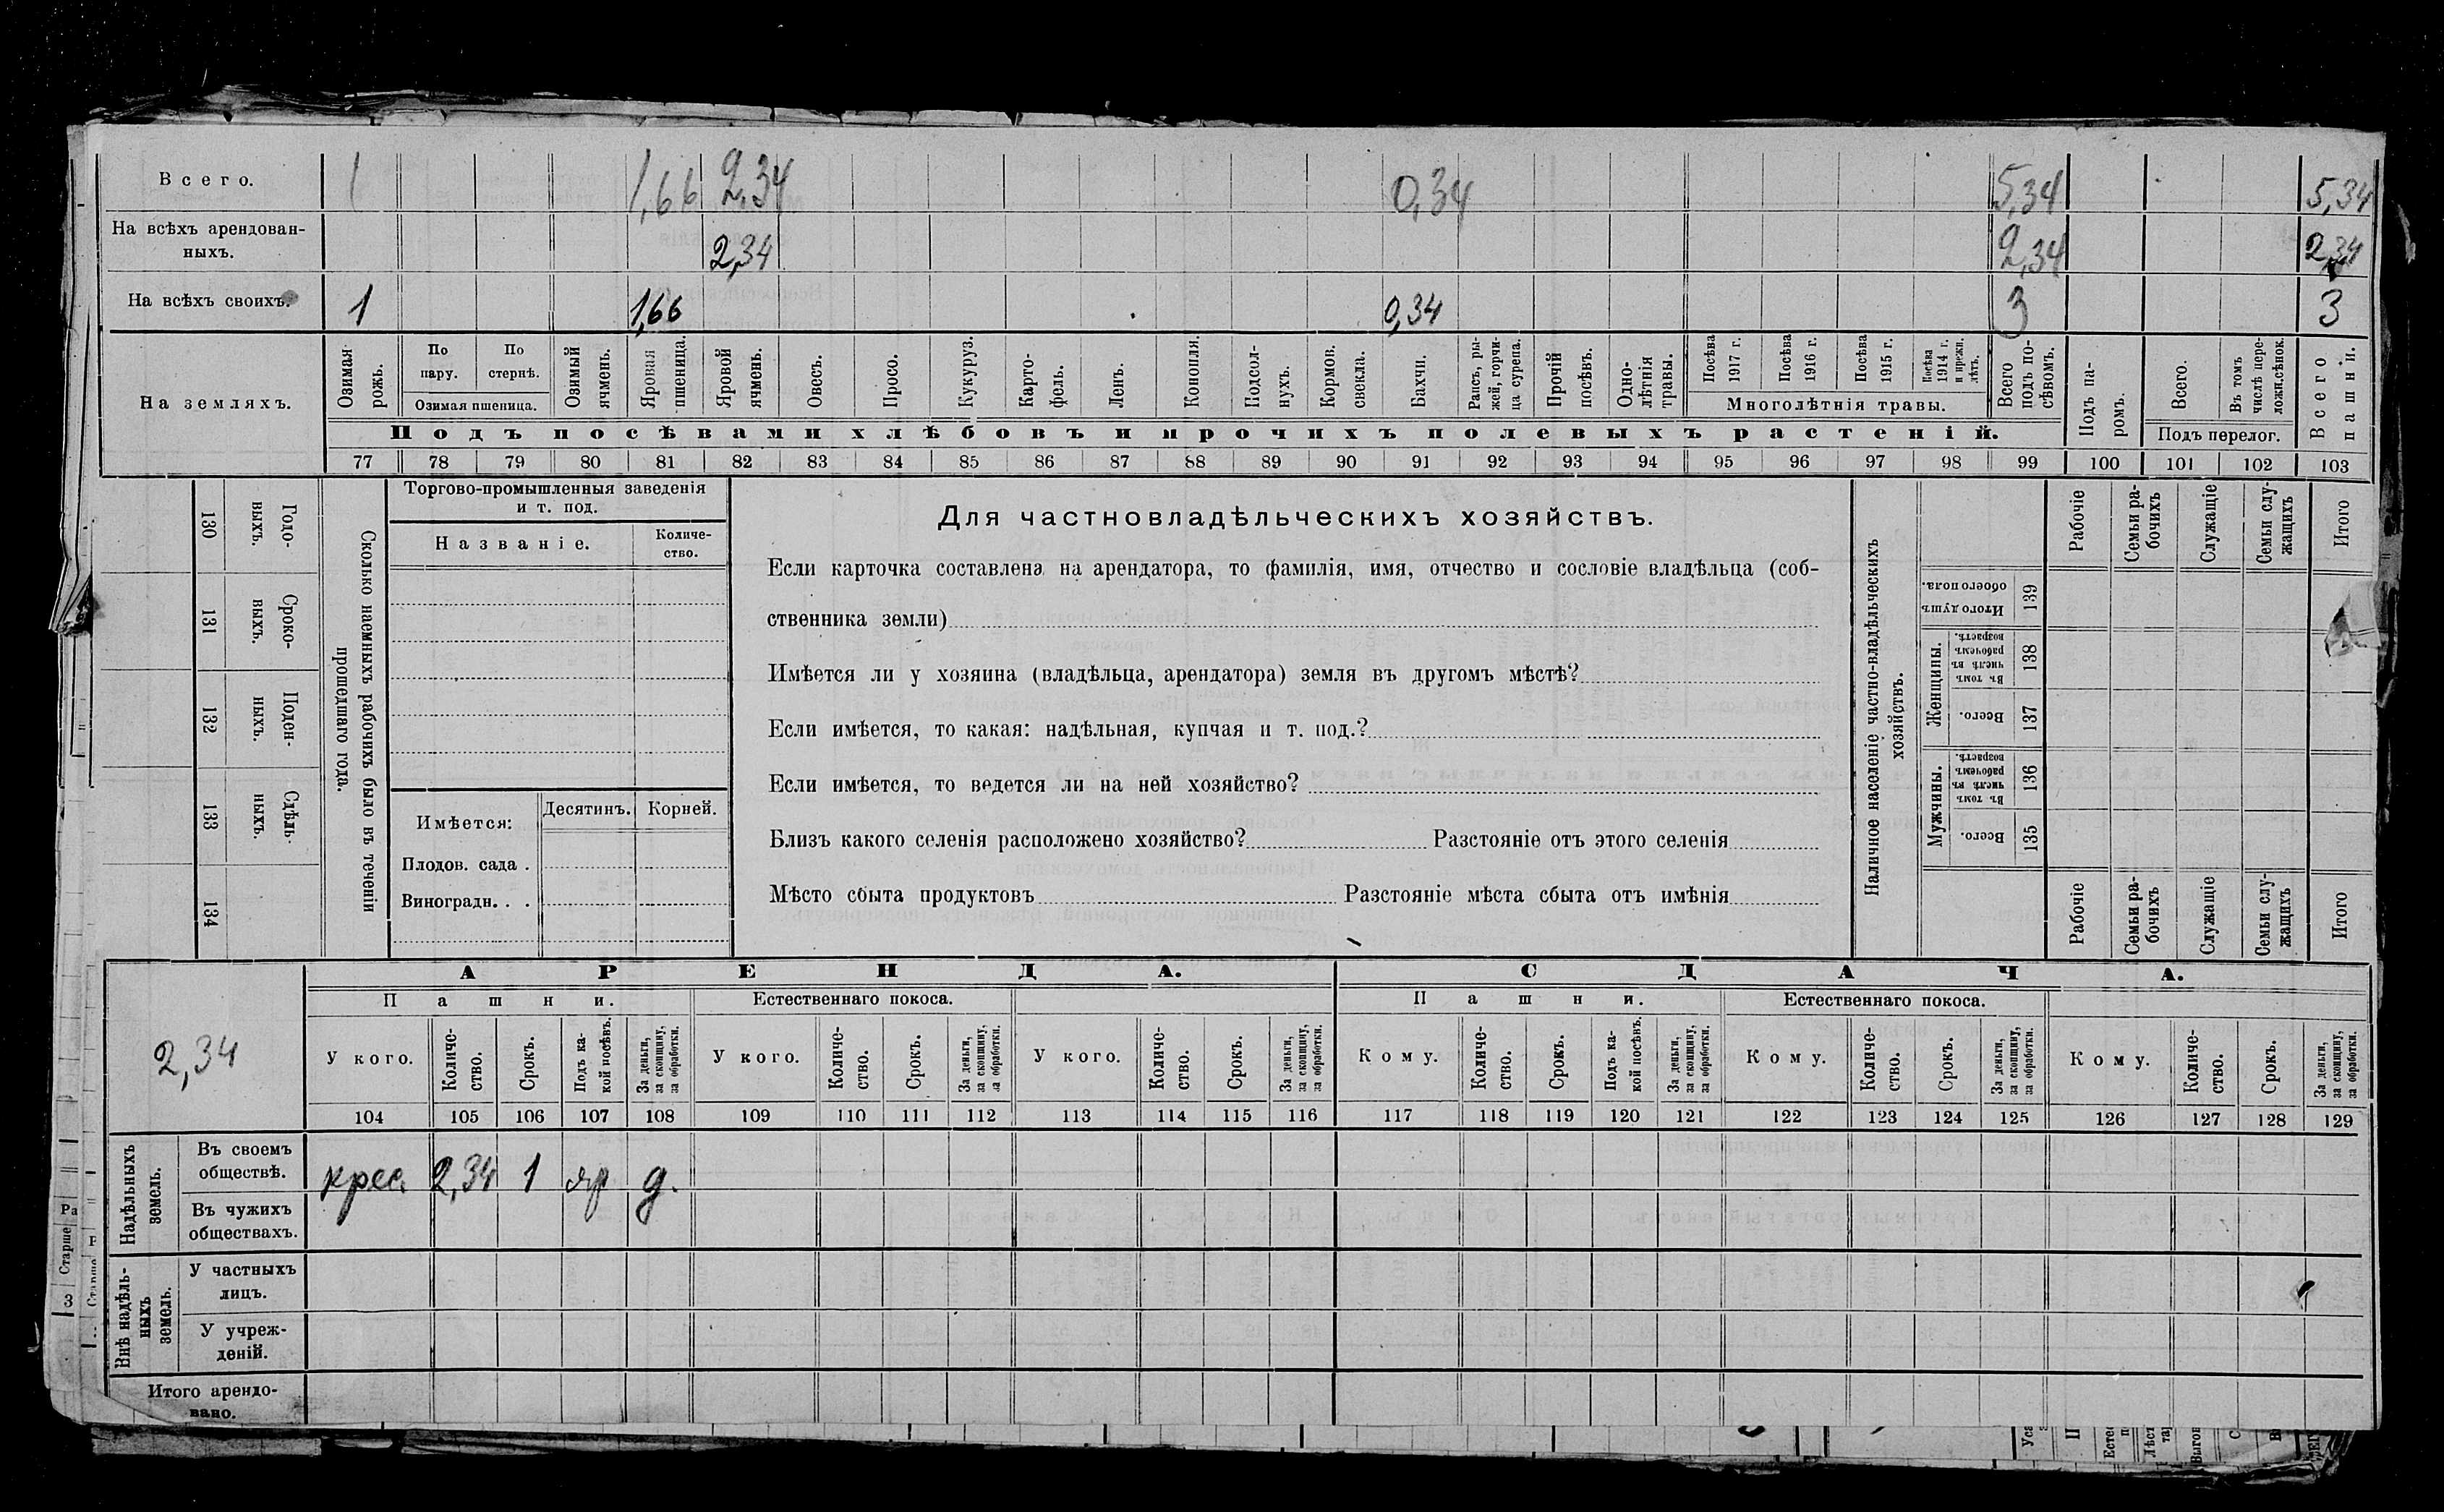 Всего. 1 1,66 2,34 0,34 5,34 5,34
На всѣхъ арендован-
ныхъ. 2,34 2,34 2,34
На всѣхъ своихъ. 1 1,66 0,34 3 3
На земляхъ.
Озимая рожь.
По пару.
По стернѣ.
Озимая пшеница.
Озимый ячмень.
Яровая пшеница.
Яровой ячмень.
Овесъ.
Просо.
Кукуруз.
Карто-
фель.
Ленъ.
Конопля.
Подсол-
нухъ.
Кормов.
свекла.
Бахчи.
Рапсъ, ры-
жей, горчи-
ца сурепа.
Прочій
посѣвъ.
Одно-
лѣтнія
травы.
Посѣва
1917 г.
Посѣва
1916 г.
Посѣва
1915 г.
Посѣва
1914 г.
и прежн.
лѣтъ.
Многолѣтнія травы.
Всего
подъ по-
сѣвомъ.
Подъ па-
ромъ.
Всего.
Въ томъ
числѣ пере-
ложн.сѣнок.
Подъ перелог.
Всего
пашни.
Подъ посѣвами хлѣбовъ и прочихъ полевыхъ растеній.
77 78 79 80 81 82 83 84 85 86 87 88 89 90 91 92 93 94 95 96 97 98 99 100 101 102 103
Сколько наемныхъ рабочихъ было въ теченіи
прошедшаго года.
Годо-
выхъ.
130
Сроко-
выхъ.
131
Поден-
ныхъ.
132
Сдѣль-
ныхъ.
133
134
Торгово-промышленныя заведенія
и т. под.
Названіе.
Количе-
ство.
Имѣется: Десятинъ. Корней.
Плодов. сада .
Виноградн. . .
Для частновладѣльческихъ хозяйствъ.
Если карточка составлена на арендатора, то фамилія, имя, отчество и сословіе владѣльца (соб-
ственника земли)
Имѣется ли у хозяина (владѣльца, арендатора) земля въ другомъ мѣстѣ?
Если имѣется, то какая: надѣльная, купчая и т. под.?
Если имѣется, то ведется ли на ней хозяйство?
Близъ какого селенія расположено хозяйство? Разстояніе отъ этого селенія
Мѣсто сбыта продуктовъ Разстояніе мѣста сбыта отъ имѣнія
Наличное населеніе частно-владѣльческихъ
хозяйствъ.
Рабочіе
Семьи ра-
бочихъ
Служащіе
Семьи слу-
жащихъ
Итого
Итого душъ
обоего пола.
139
Женщины.
Въ томъ
числѣ въ
рабочемъ
возрастѣ.
138
Всего.
137
Мужчины.
Въ томъ
числѣ въ
рабочемъ
возрастѣ.
136
Всего.
135
Рабочіе
Семьи ра-
бочихъ
Служащіе
Семьи слу-
жащихъ
Итого
АРЕНДА. СДАЧА.
Пашни. Естественнаго покоса. Пашни. Естественнаго покоса.
2,34
У кого.
Количе-
ство.
Срокъ.
Подъ ка-
кой посѣвъ.
За деньги,
за скопщину,
за обработки.
У кого.
Количе-
ство.
Срокъ.
За деньги,
за скопщину,
за обработки.
У кого.
Количе-
ство.
Срокъ.
За деньги,
за скопщину,
за обработки.
Кому.
Количе-
ство.
Срокъ.
Подъ ка-
кой посѣвъ.
За деньги,
за скопщину,
за обработки.
Кому.
Количе-
ство.
Срокъ.
За деньги,
за скопщину,
за обработки.
Кому.
Количе-
ство.
Срокъ.
За деньги,
за скопщину,
за обработки.
104 105 106 107 108 109 110 111 112 113 114 115 116 117 118 119 120 121 122 123 124 125 126 127 128 129
Надѣльныхъ
земель.
Въ своемъ
обществѣ.
крес. 2,34 1 яр д.
Въ чужихъ
обществахъ.
Внѣ надѣль-
ныхъ
земель.
У частныхъ
лицъ.
У учреж-
деній.
Итого арендо-
вано.
Ра
Старше
3